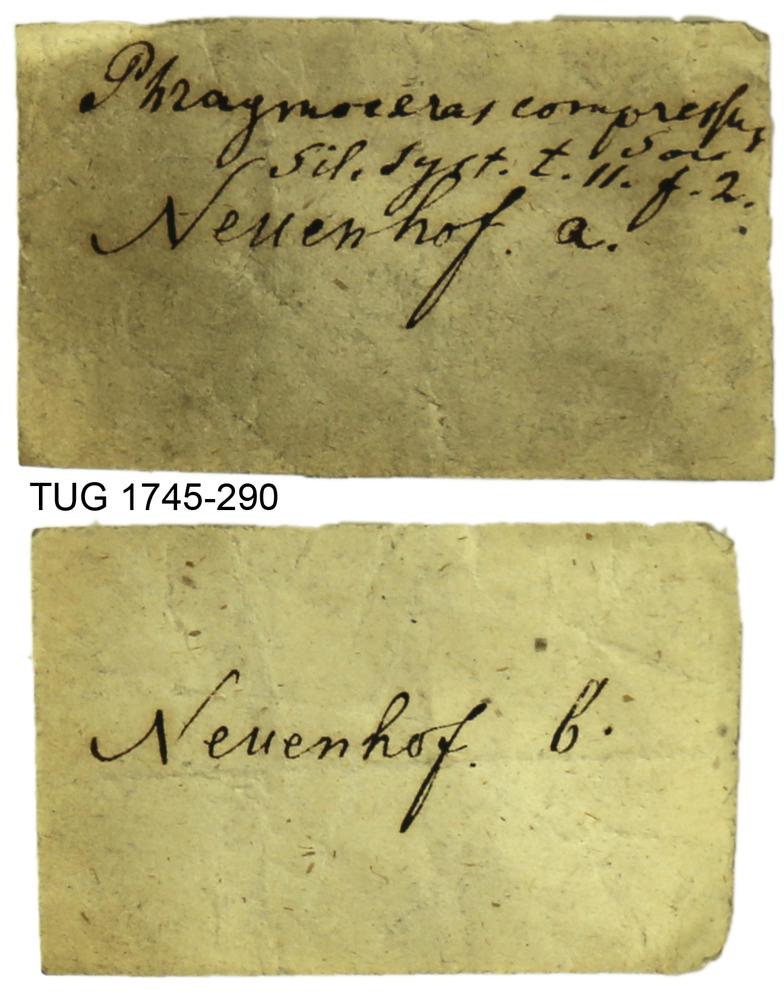 Phragmoceras compressus
Sow
Sil. Syst. t. 11. f. 2.
Neuenhof. a.
TUG 1745-290
Neuenhof. b.